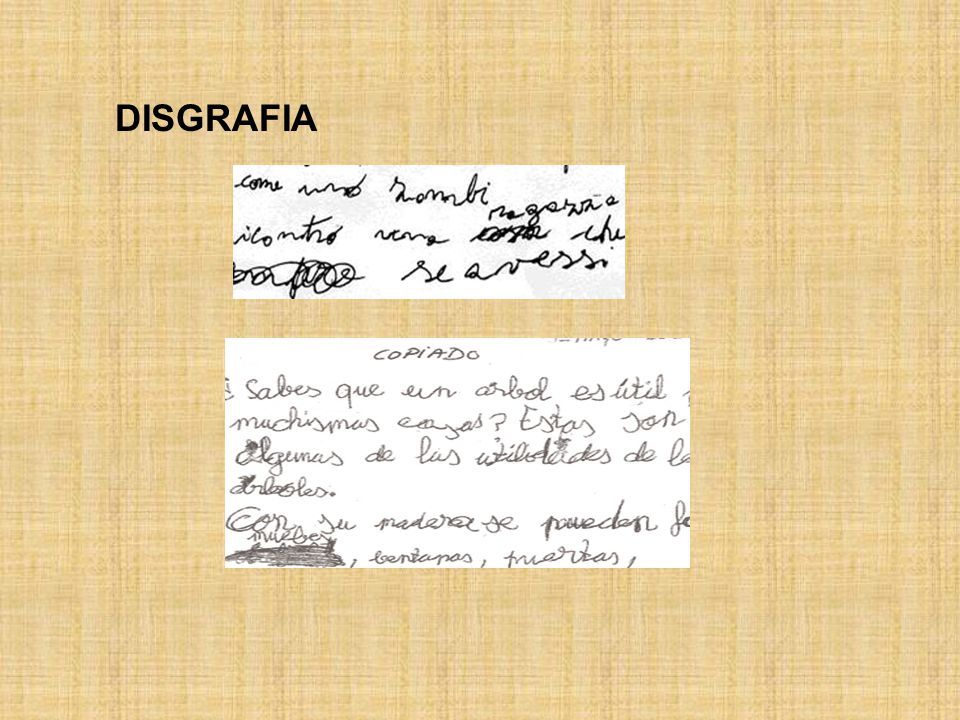 DISGRAFIA
come uno zombi
ragazzo
icontrò una che
se avessi
COPIADO
Sabes que un arbol es útil
muchismas cosas? Estas son
Algumas de las utilidades de
arboles.
Con su madera se pueden
muebes
, bentanas, puertas,